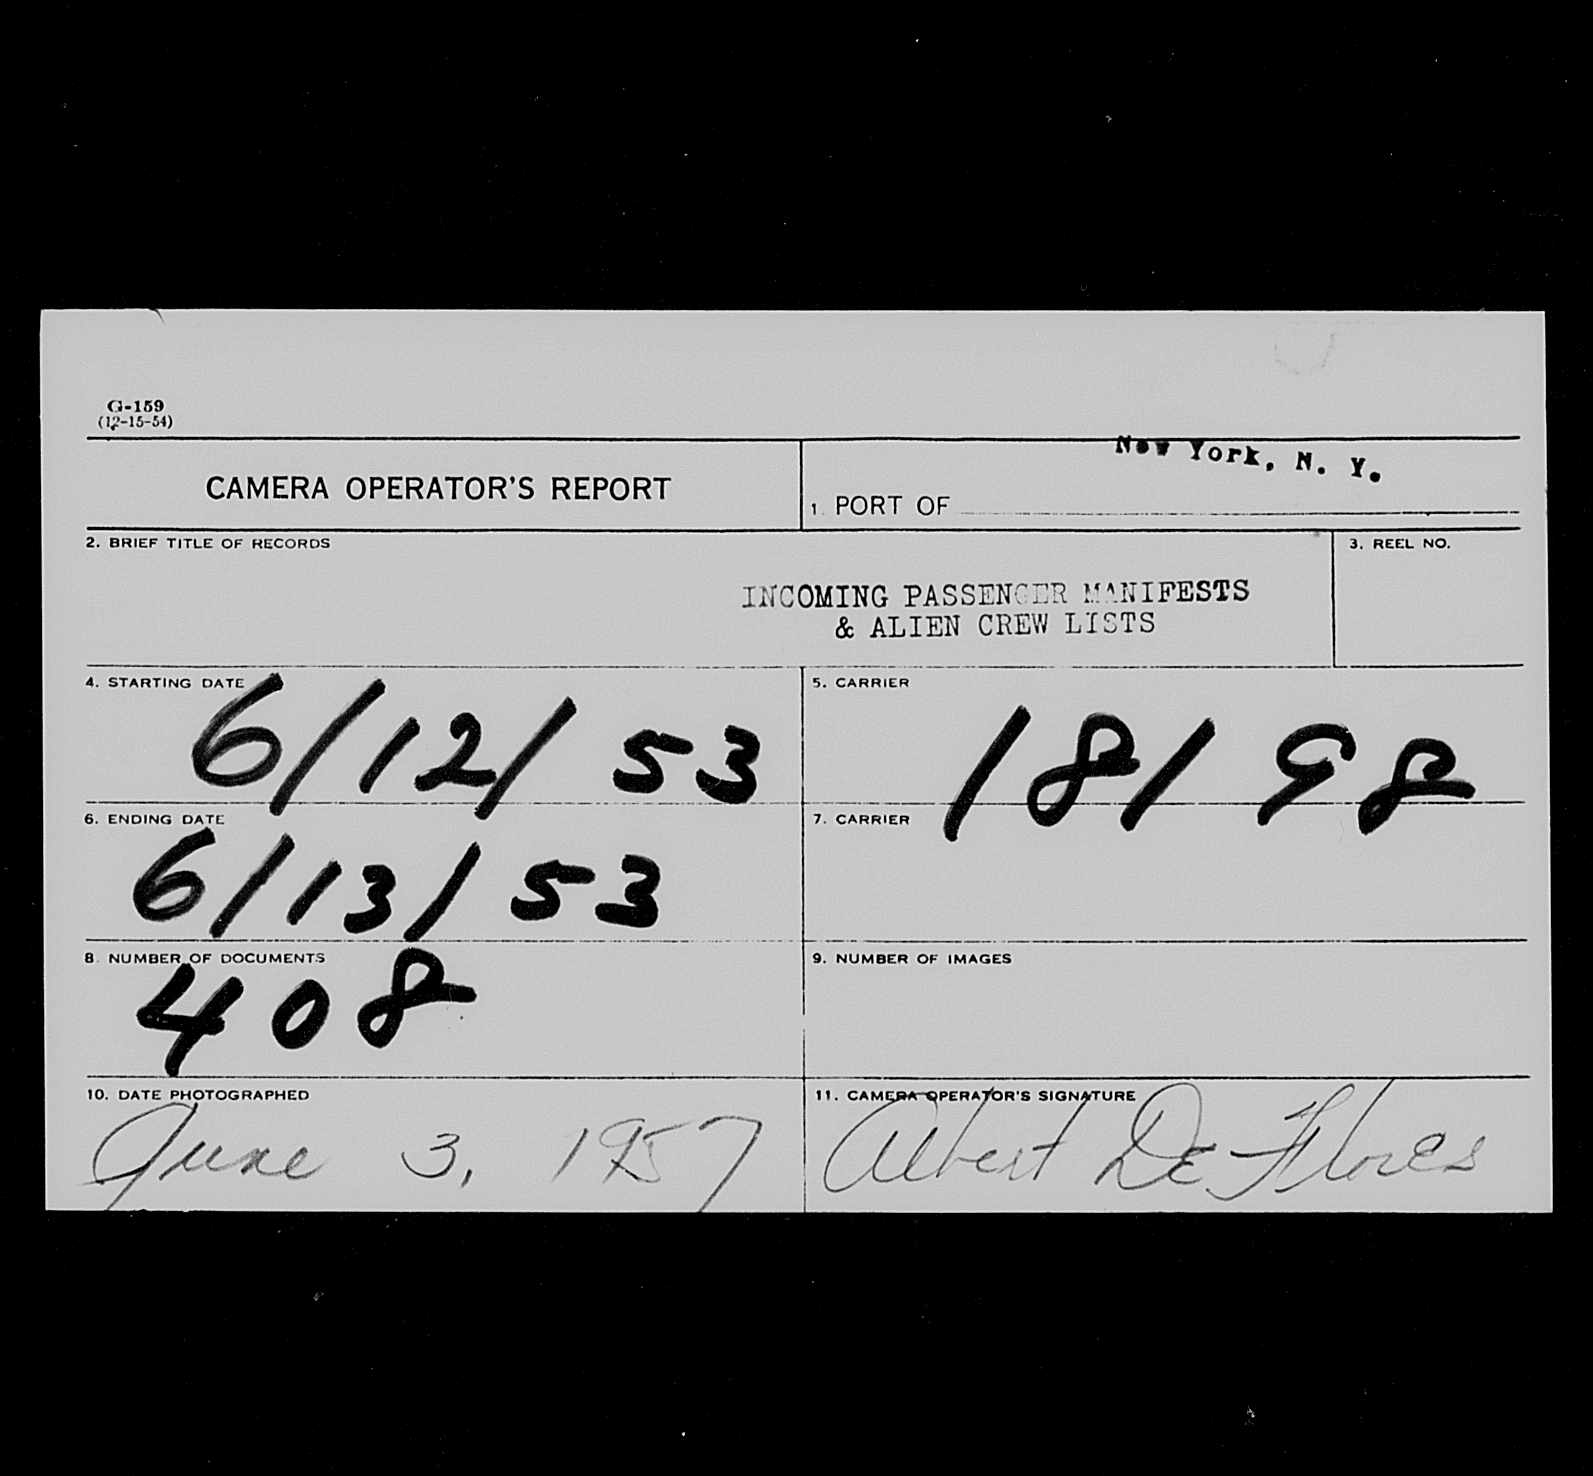 G-159
(12-15-54)
CAMERA OPERATOR'S REPORT
1. PORT OF New York, N. Y.
2. BRIEF TITLE OF RECORDS
3. REEL NO.
INCOMING PASSENGER MANIFESTS
& ALIEN CREW LISTS
4. STARTING DATE
6/12/53
5. CARRIER
18198
6. ENDING DATE
6/13/53
7. CARRIER
8. NUMBER OF DOCUMENTS
408
9. NUMBER OF IMAGES
10. DATE PHOTOGRAPHED
June 3, 1957
11. CAMERA OPERATOR'S SIGNATURE
Albert De Flores